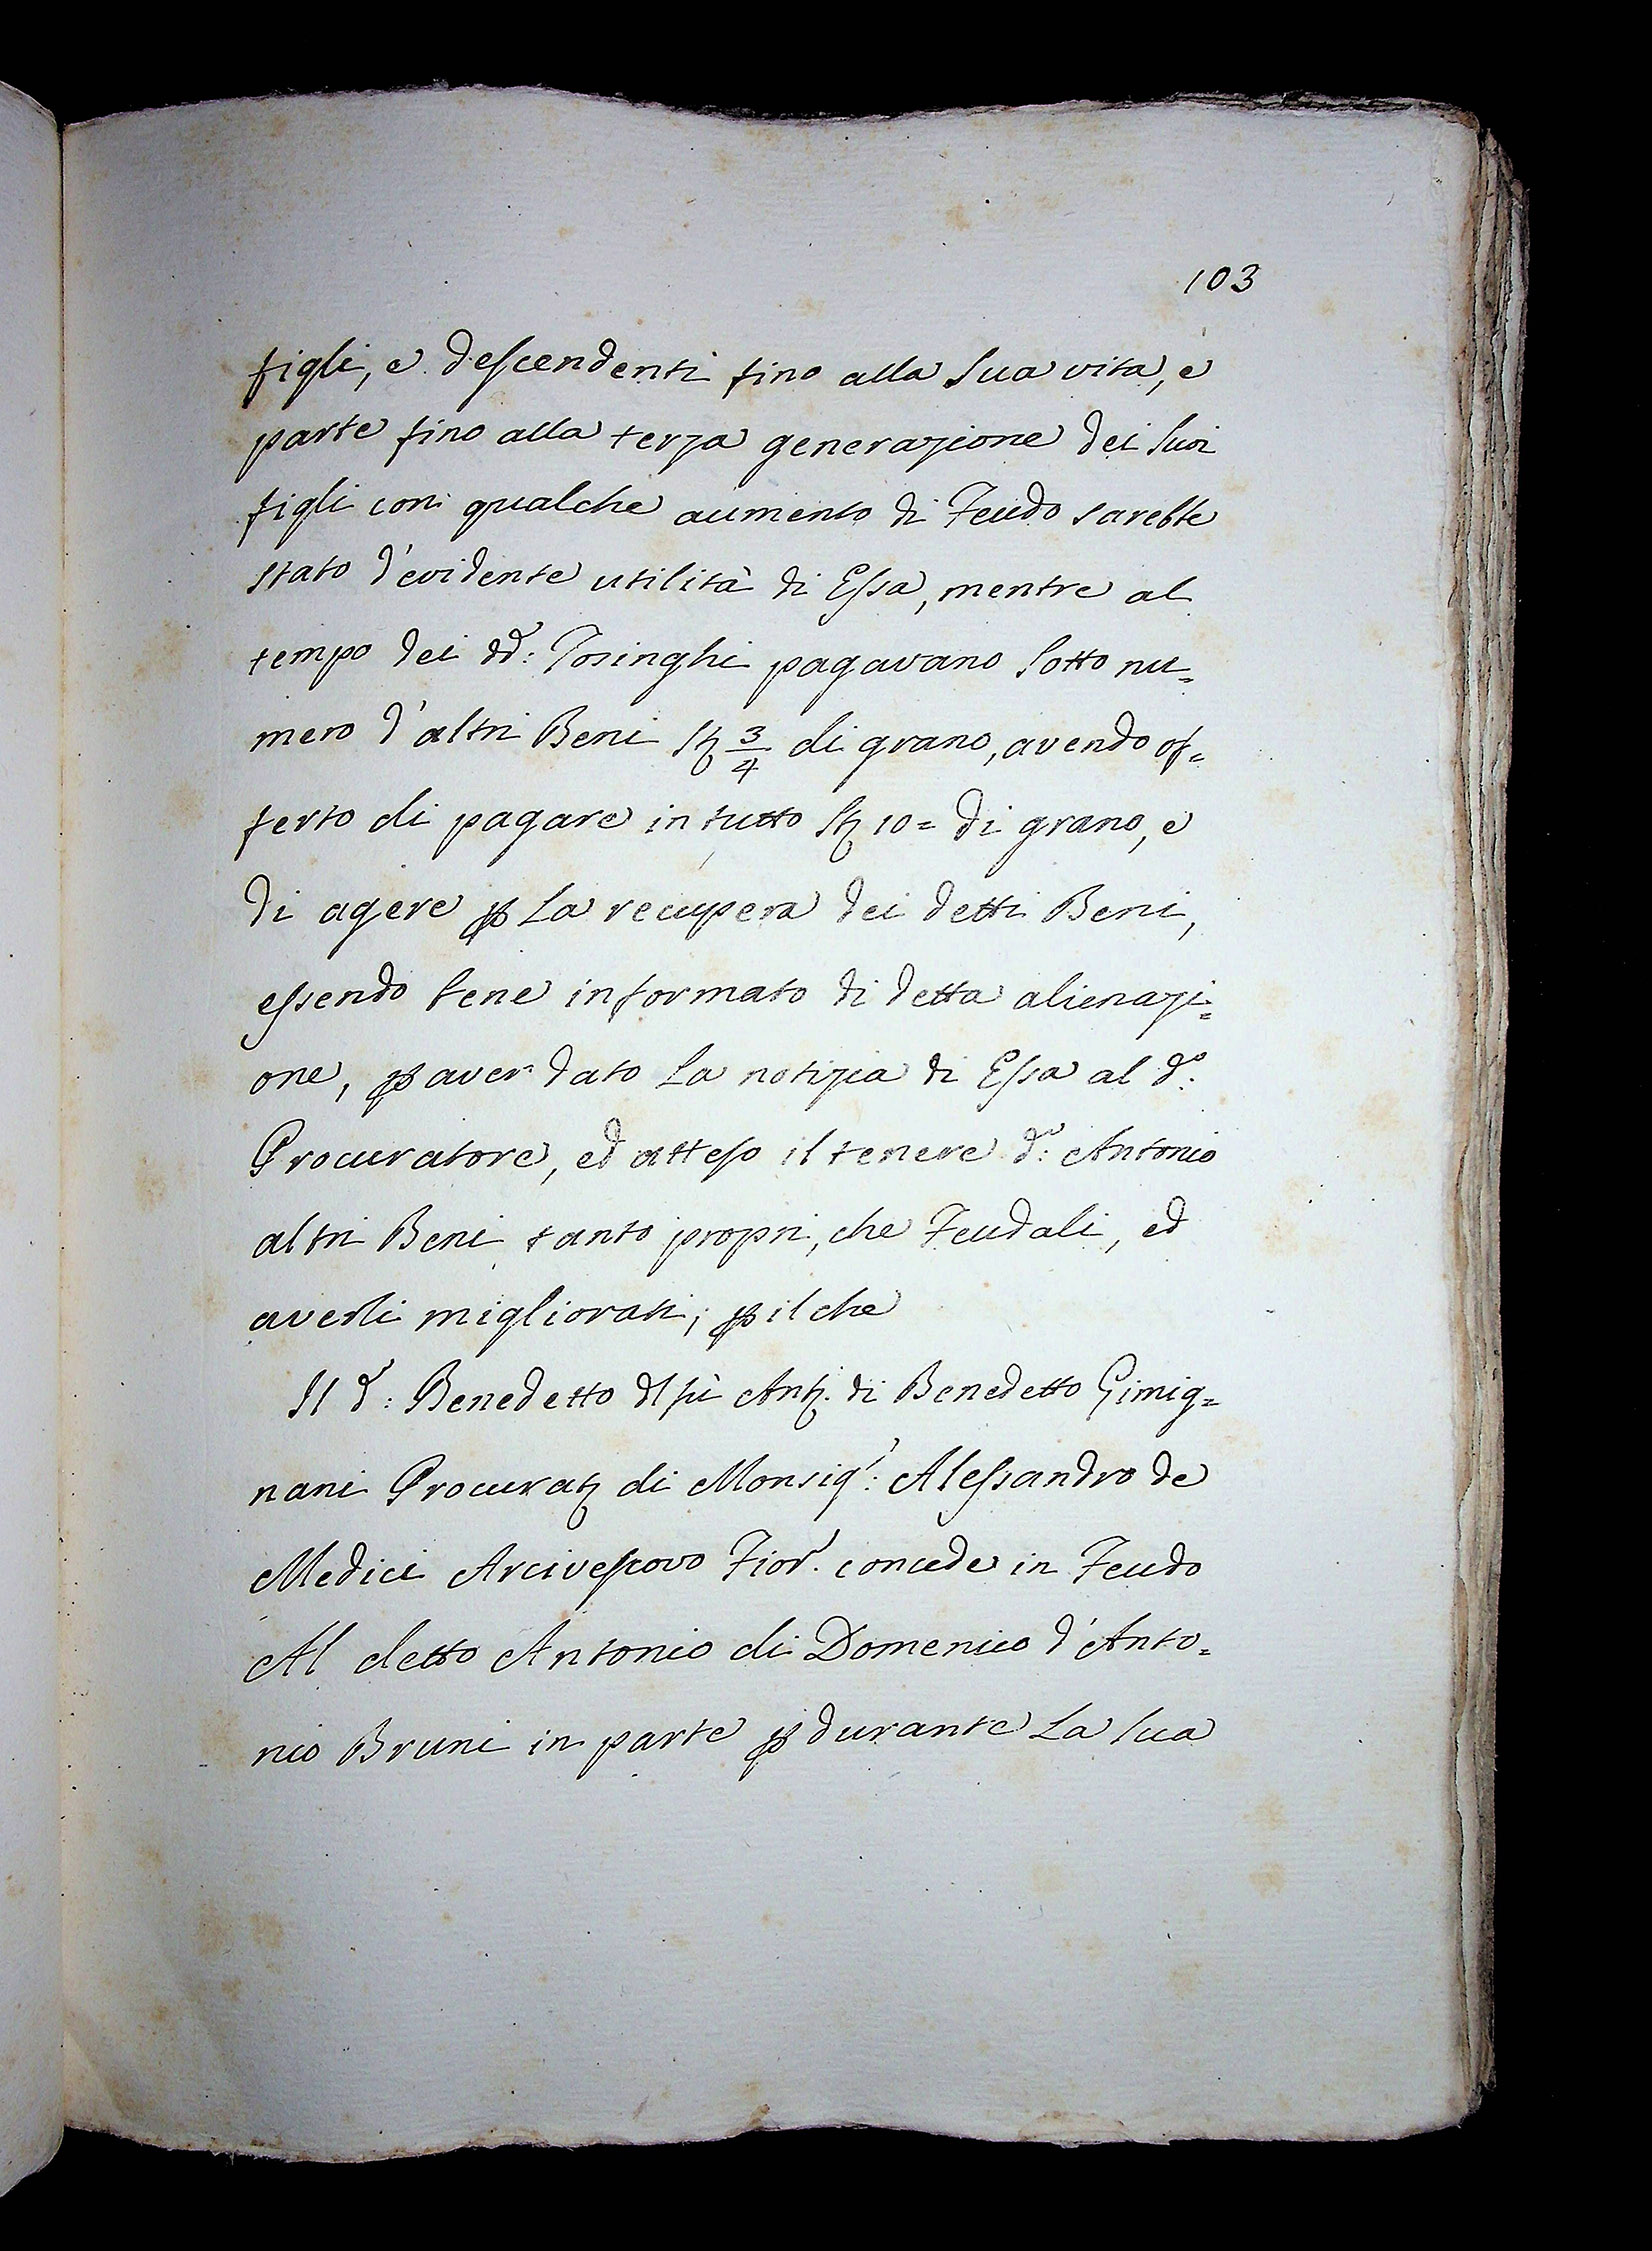 103
figli, e descendenti fino alla Sua vita, e
parte fino alla terza generazione dei Suoi
figli con qualche aumento di Feudo sarebbe
stato d'evidente utilità di Essa, mentre al
tempo dei dd: Tosinghi pagavano Sotto nu=
mero d'altri Beni St 3/4 di grano, avendo of=
ferto di pagare in tutto St 10= di grano, e
di agere p La recupera dei detti Beni,
essendo bene informato di detta alienazi=
one, p aver dato La notizia di Essa al d.o:
Procuratore, ed atteso il tenere d.o: Antonio
altri Beni tanto propri, che Feudali, ed
averli migliorati; p il che
Il d: Benedetto dl fù Ant. di Benedetto Gimig=
nani Procurat di Monsig.r: Alessandro de
Medici Arcivescovo Fior. concede in Feudo
Al detto Antonio di Domenico d'Anto=
nio Bruni in parte p durante La Sua